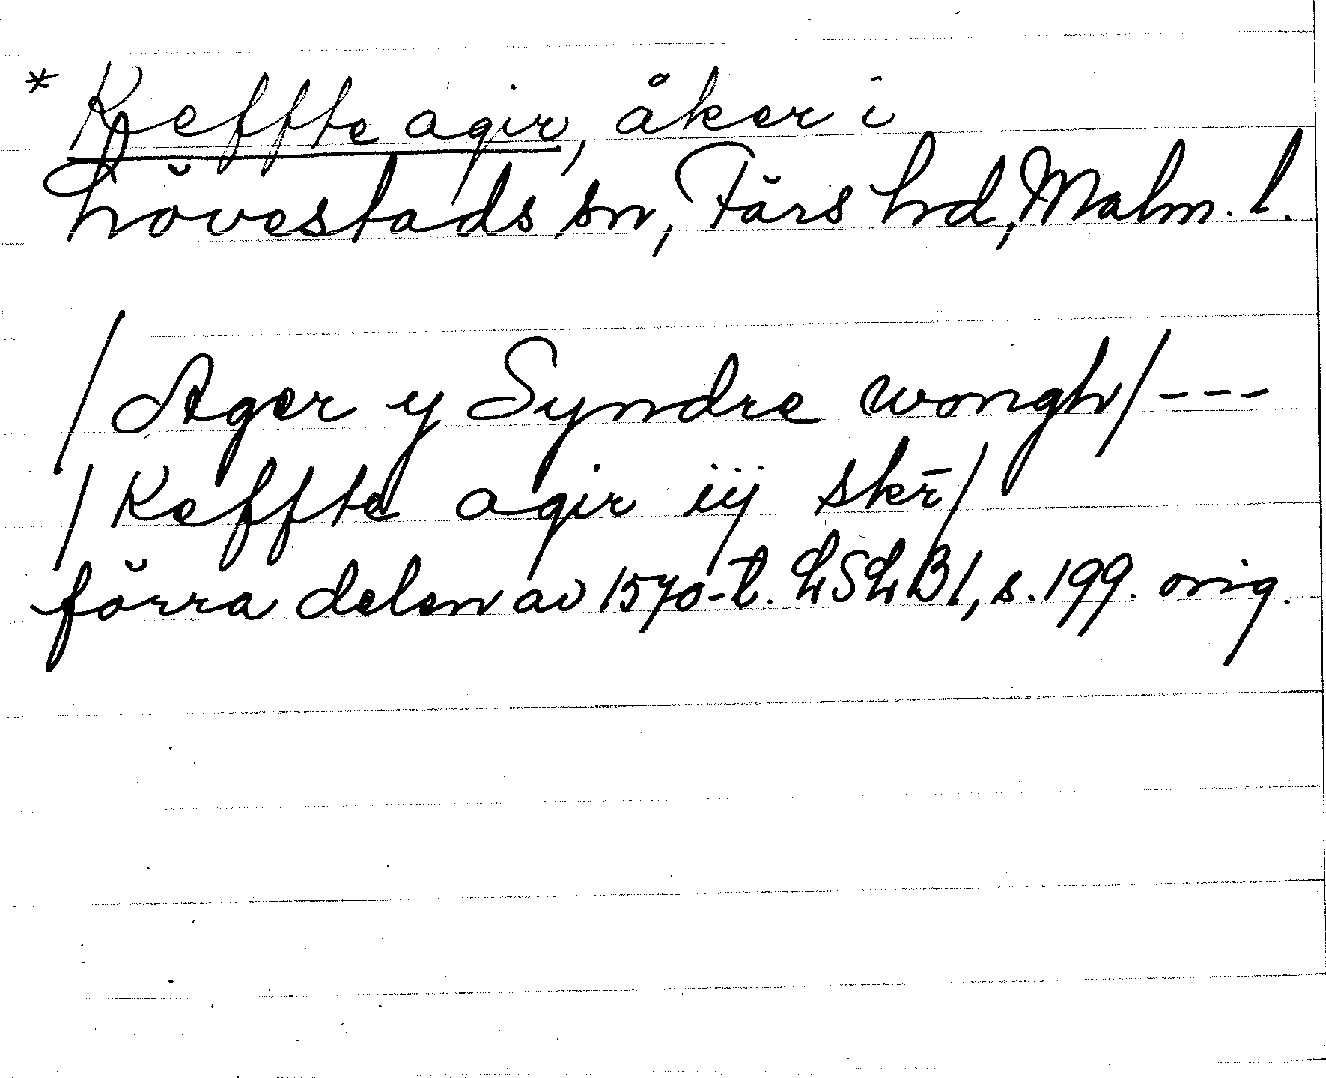 * Keffte agir, åker i
Lövestads sn, Färs hd, Malm. l.
/Ager y Syndre wongh/---
/Keffte agir iij skr̄/
förra delen av 1570-t. LSLB1, s. 199. orig.